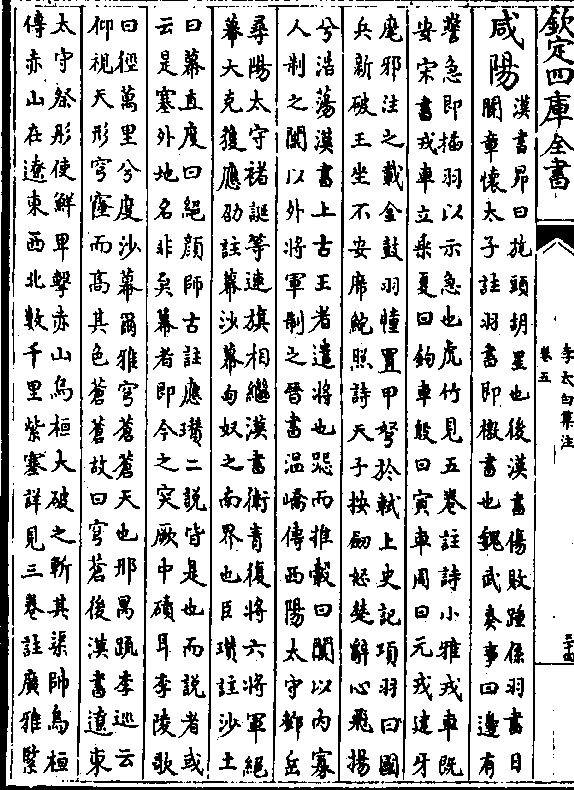 欽定四庫全書
李太白集注
卷五
三十四
咸陽
漢書昴曰旄頭胡星也後漢書傷敗踵係羽書日
聞章懷太子註羽書即檄書也魏武奏事曰邊有
警急即插羽以示急也虎竹見五卷註詩小雅戎車既
安宋書戎車立乘夏曰鉤車殷曰寅車周曰元戎建牙
麾邪注之載金鼓羽幢置甲弩於軾上史記項羽曰國
兵新破王坐不安席鮑照詩天子按劒怒楚辭心飛揚
兮浩蕩漢書上古王者遣將也跪而推轂曰閫以内寡
人制之閫以外將軍制之晉書温嶠傳西陽太守鄧岳
尋陽太守褚誕等連旗相繼漢書衛青復將六將軍絕
幕大克獲應劭註幕沙幕匈奴之南界也臣瓚註沙土
曰幕直度曰絕顔師古註應瓚二説皆是也而説者或
云是塞外地名非矣幕者即今之突厥中磧耳李陵歌
曰徑萬里兮度沙幕爾雅穹蒼蒼天也邢昺疏李巡云
仰視天形穹窿而髙其色蒼蒼故曰穹蒼後漢書遼東
太守祭肜使鮮卑擊赤山烏桓大破之斬其渠帥烏桓
傳赤山在遼東西北數千里紫塞詳見三卷註廣雅